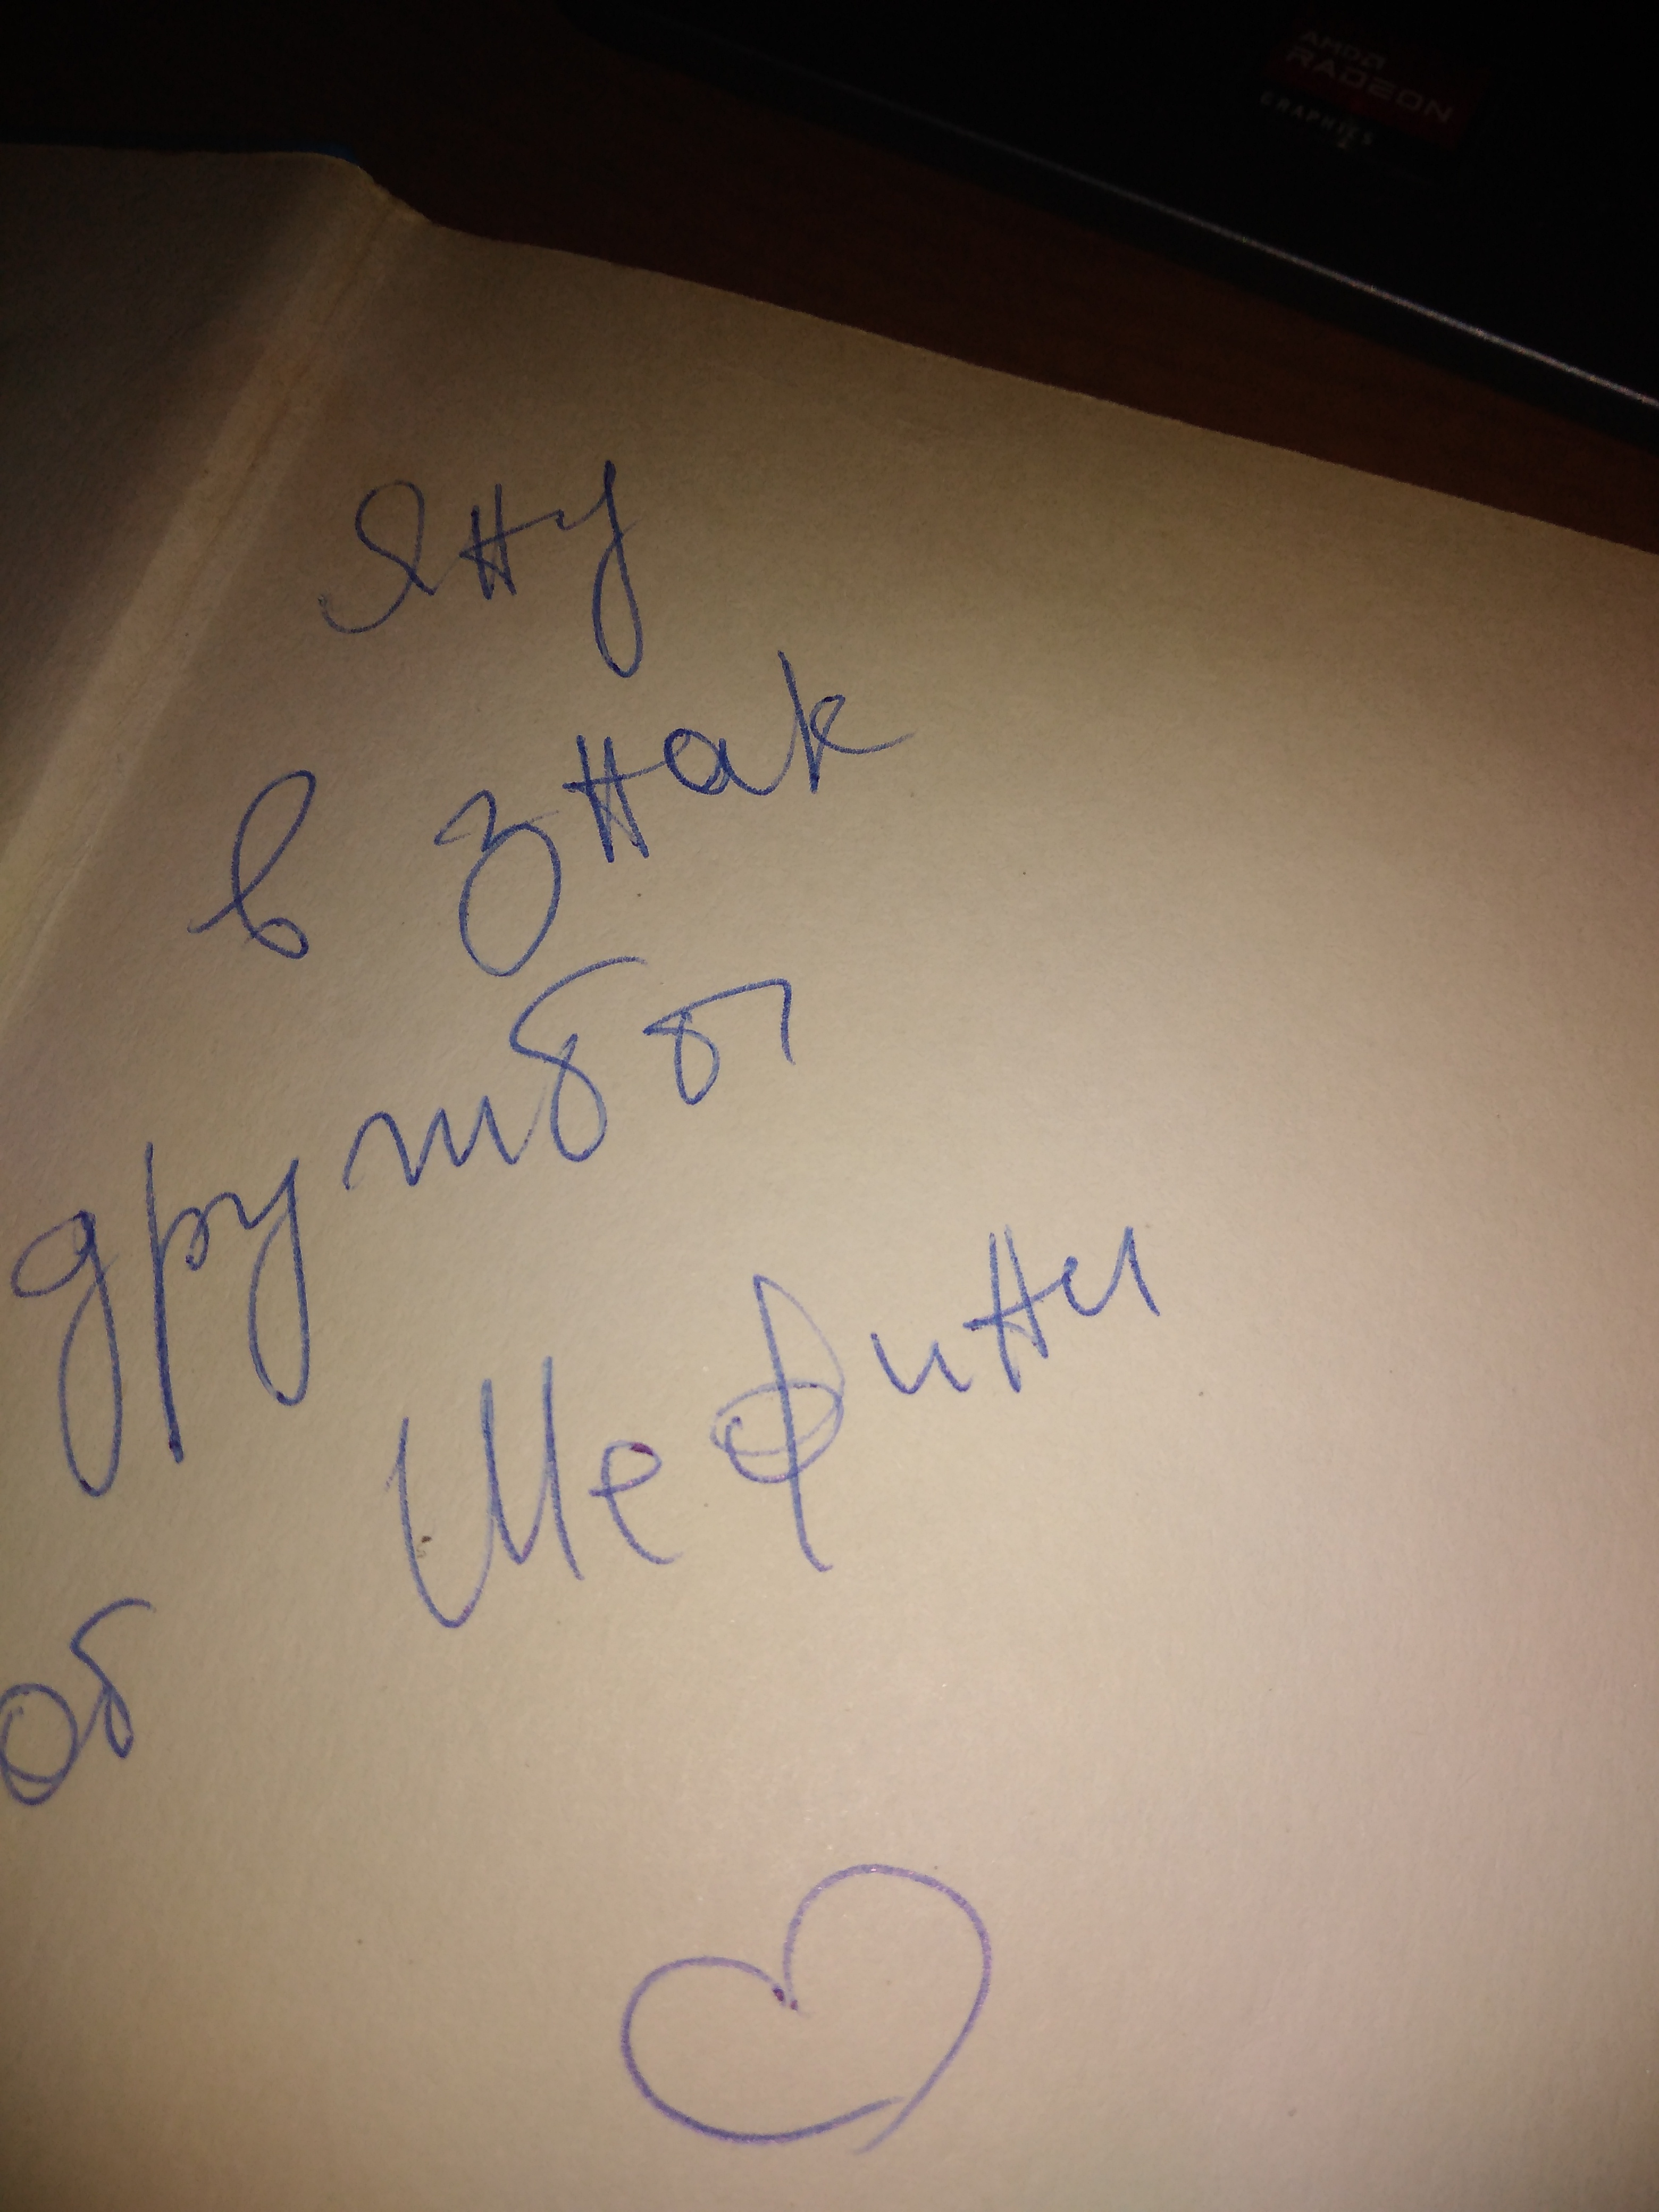 AMD
RADEON
GRAPHICS
Яну
в знак
дружбы
от Шефини